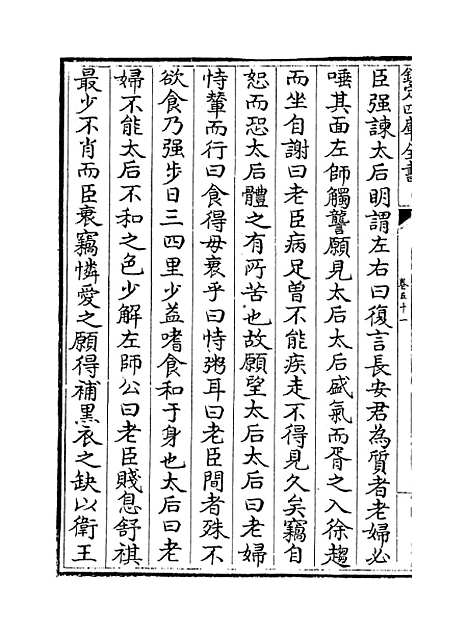 欽定四庫全書
卷五十一
臣强諫太后明謂左右曰復言長安君為質者老婦必
唾其面左師觸讋願見太后太后盛氣而胥之入徐趨
而坐自謝曰老臣病足曽不能疾走不得見久矣竊自
恕而恐太后體之有所苦也故願望太后太后曰老婦
恃輦而行曰食得毋衰乎曰恃粥耳曰老臣間者殊不
欲食乃强步日三四里少益嗜食和于身也太后曰老
婦不能太后不和之色少解左師公曰老臣賤息舒祺
最少不肖而臣衰竊憐愛之願得補黑衣之缺以衛王